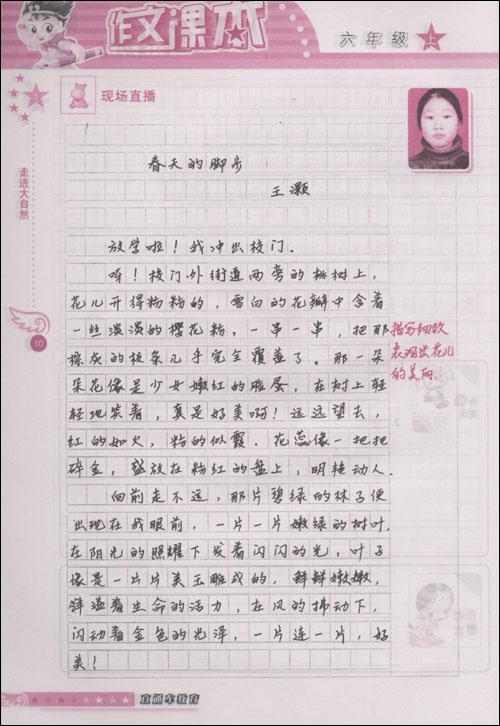 作文课本
六年级 上
现场直播
走进大自然
春天的脚步
王灏
放学啦！我冲出校门。
呀！校门外街道两旁的桃树上，
花儿开得粉粉的，雪白的花瓣中含着
一丝淡淡的樱花粉，一串一串，把那
棕灰的枝条几乎完全覆盖了。那一朵
朵花像是少女嫩红的脸蛋，在树上轻
轻地笑着，真是好美啊！远远望去，
红的如火，粉的似霞。花蕊像一把把
碎金，盛放在粉红的盘上，明艳动人。
描写细致
表现出花儿
的美丽。
向前走不远，那片碧绿的林子便
出现在我眼前，一片一片嫩绿的树叶，
在阳光的照耀下发着闪闪的光，叶子
像是一片片美玉雕成的，鲜鲜嫩嫩，
洋溢着生命的活力，在风的拂动下，
闪动着金色的光泽，一片连一片，好
美！
10
直通车教育